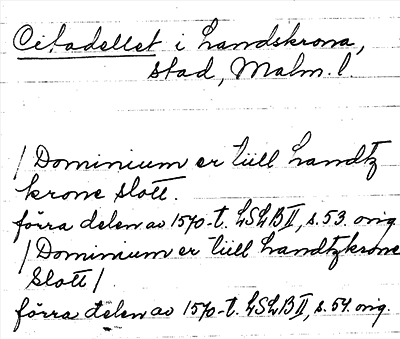 Citadellet i Landskrona,
stad, Malm. l.
/Dominium er tiill Landtz
krone Slott.
förra delen av 1570-t. LSLB II, s. 53. orig
/Dominium er tiill Landtzkrone
Slott/
förra delen av 1570-t. LSLB II, s. 54. orig.